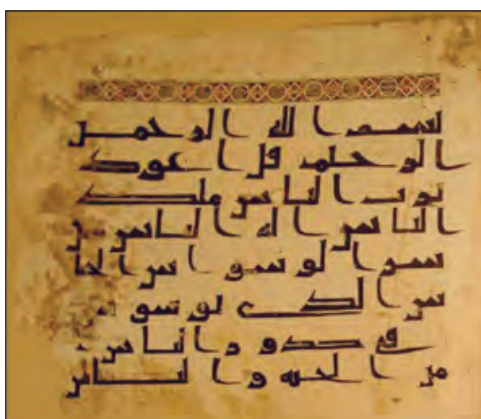 بسم الله الرحمن
الرحيم قل اعوذ
برب الناس ملك
الناس اله الناس من
شر الوسواس الخنا
س الذي يوسوس
في صدور الناس
من الجنه والناس